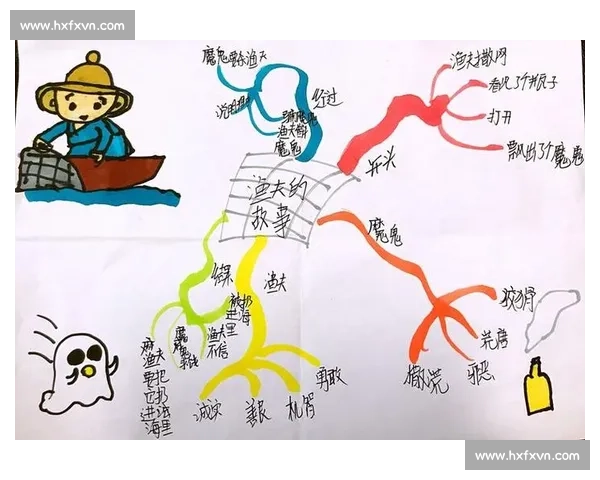 www.hxfxvn.com
渔夫的
故事
开头
渔夫撒网
看见了个瓶子
打开
飘出了个魔鬼
经过
魔鬼要杀渔夫
魔鬼
魔鬼
狡猾
凶恶
邪恶
撒谎
渔夫
勇敢
机智
善良
诚实
结果
被扔
进海
里
渔夫
不信
渔夫
要把
它扔
进
海里
www.hxfxvn.com